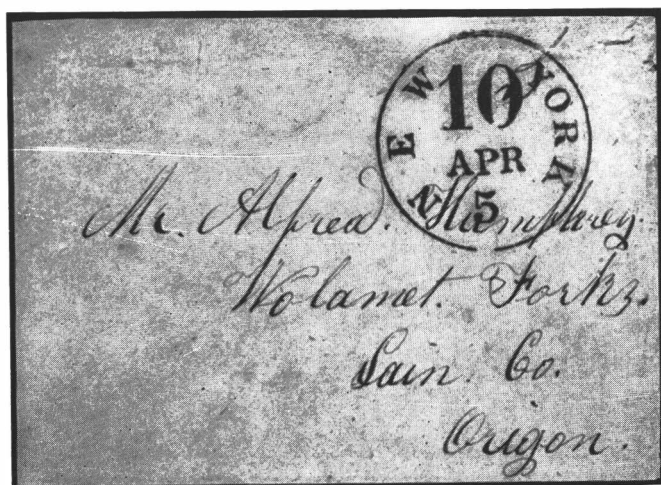 NEW YORK
10
APR
5
Mr. Alfred. Humphrey.
Wolamet. Forks.
Lain. Co.
Origon.